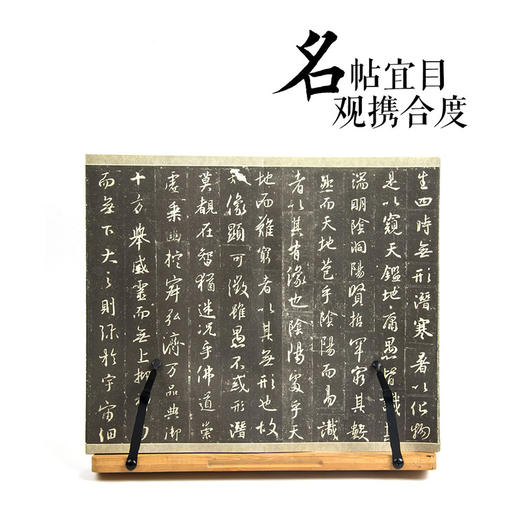 名帖宜目
观携合度
生四時無形潛寒暑以化物
是以窺天鑑地庸愚皆識其
端明陰洞陽賢哲罕窮其數
然而天地苞乎陰陽而易識
者以其有像也陰陽處乎天
地而難窮者以其無形也故
知像顯可徵雖愚不惑形潛
莫覩在智猶迷況乎佛道崇
虛乘幽控寂弘濟万品典御
十方舉威靈而無上抑
而無下大之則弥於宇宙細